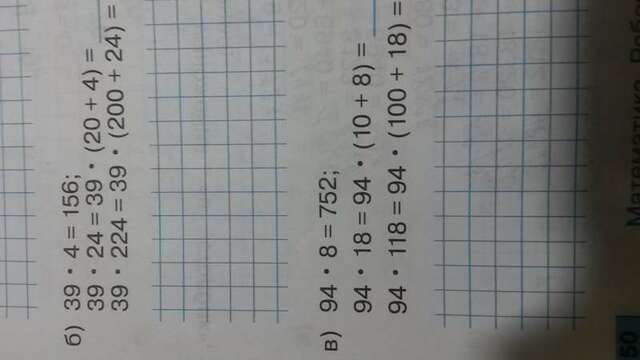 б) 39 · 4 = 156;
39 · 24 = 39 · (20 + 4) =
39 · 224 = 39 · (200 + 24) =
в) 94 · 8 = 752;
94 · 18 = 94 · (10 + 8) =
94 · 118 = 94 · (100 + 18) =
50